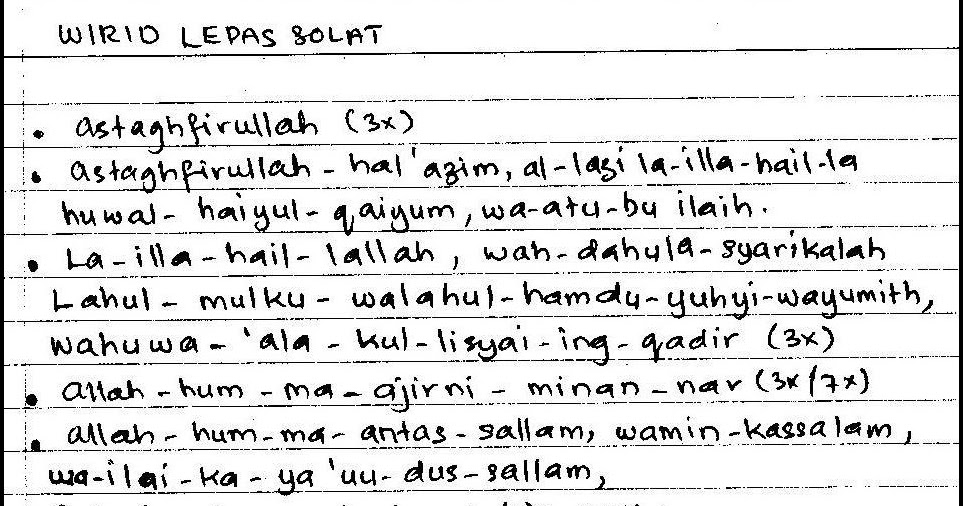 WIRID LEPAS SOLAT
• Astaghfirullah (3x)
• Astaghfirullah - hal 'azim, al-lazi la-illa-hail-la
huwal - haiyul - qaiyum, wa-atu-bu ilaih.
• La-illa-hail-lallah, wah-dahula-syarikalah
Lahul - mulku - walahul-hamdu-yuhyi-wayumith,
wahuwa - 'ala - kul-lisyai-ing-qadir (3x)
• Allah-hum-ma-ajirni-minan-nar (3x/7x)
• Allah-hum-ma-antas-sallam, wamin-kassalam,
wa-ilai-ka-ya 'uu-dus-sallam,